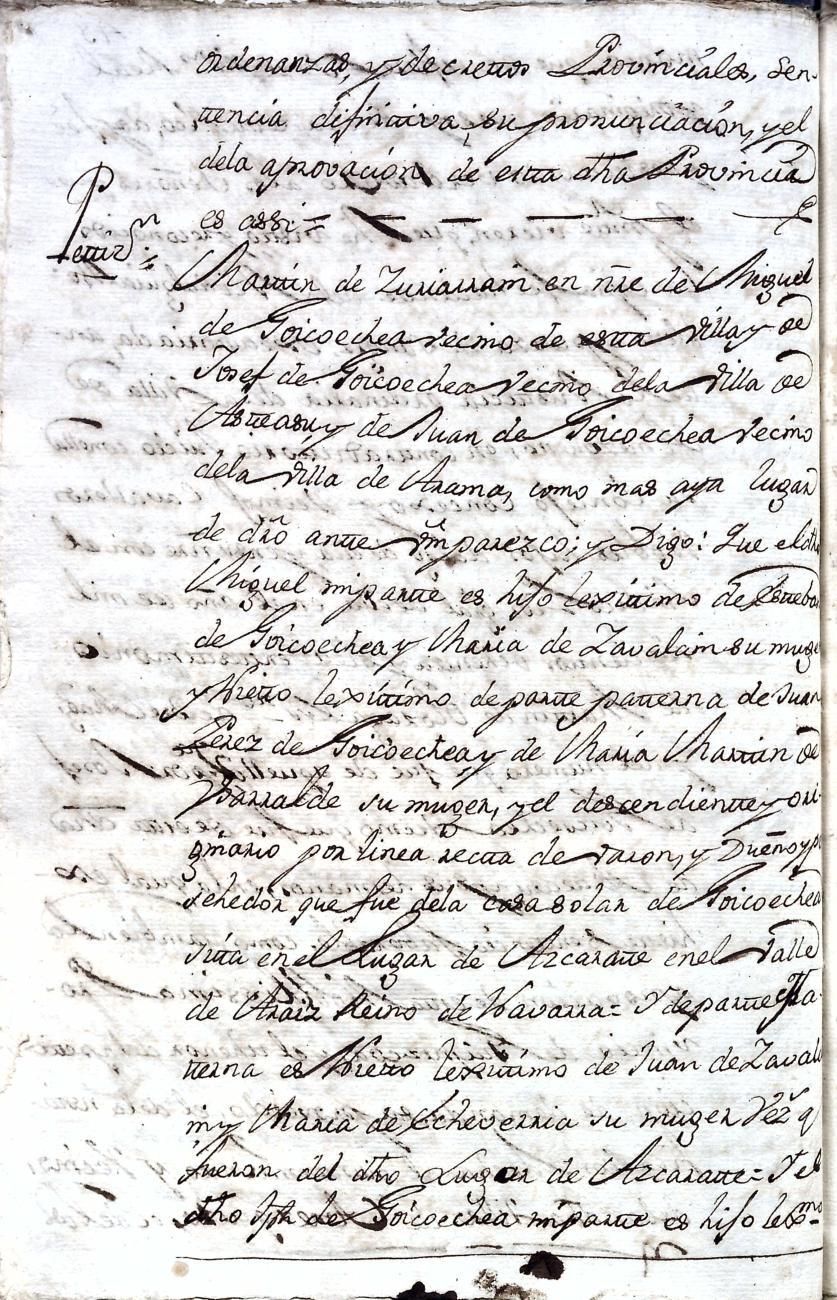 ordenanzas, y decrettos Provinciales, Sen-
ttencia difinittiva, su pronunciación, y el
dela aprovación de estta dha Provincia
es assi =
Pettizon
Marttin de Zuriarrain en nre de Miguel
de Goicoechea vecino de estta villa y de
Josef de Goicoechea vecino dela villa de
Astteasu, y de Juan de Goicoechea vecino
dela villa de Arama, como mas aya lugar
de dro antte Vm parezco; y Digo: Que el dho
Miguel mi partte es hijo lexittimo de Estteban
de Goicoechea y María de Zavalain su muger
y Nietto lexíttimo de partte patterna de Juan
Perez de Goicoechea y de María Marttin de
Ybarralde su muger, y el descendientte y ori-
ginario por linea rectta de varon, y Dueño y po
sehedor que fue dela casa solar de Goicoechea
sitta en el Lugar de Azcaratte en el valle
de Araiz Reino de Navarra = Y de partte Ma-
tterna es Nietto lexittimo de Juan de Zavala
in y María de Echeverria su muger Vezs q
fueron del dho Lugar de Azcaratte = Y el
dho Jph de Goicoechea mi partte es hijo lexmo